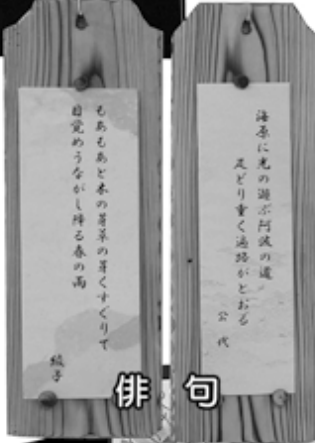 海原に光の遊ぶ阿波の道
足どり重く遍路がとおる
公代
もあもあと木の芽草の芽くすぐりて
目覚めうながし降る春の雨
綾子
俳句